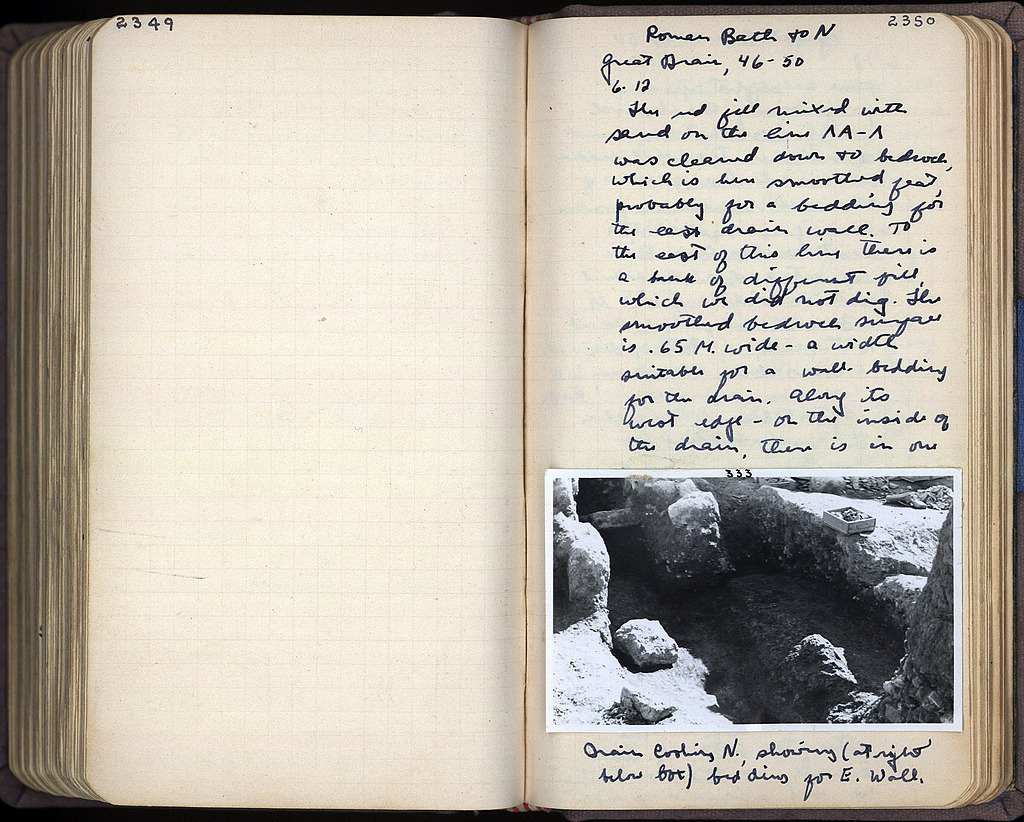 2349
2350
Roman Bath to N
Great Drain, 46-50
6.12
The red fill mixed with
sand on the line ΛΑ-Λ
was cleaned down to bedrock,
which is here smoothed flat,
probably for a bedding for
the east drain wall. To
the east of this line there is
a bank of different fill,
which we did not dig. The
smoothed bedrock surface
is .65 M. wide - a width
suitable for a wall bedding
for the drain. Along its
west edge - on the inside of
the drain, there is in one
333
Drain looking N., showing (at right
below box) bedding for E. Wall.